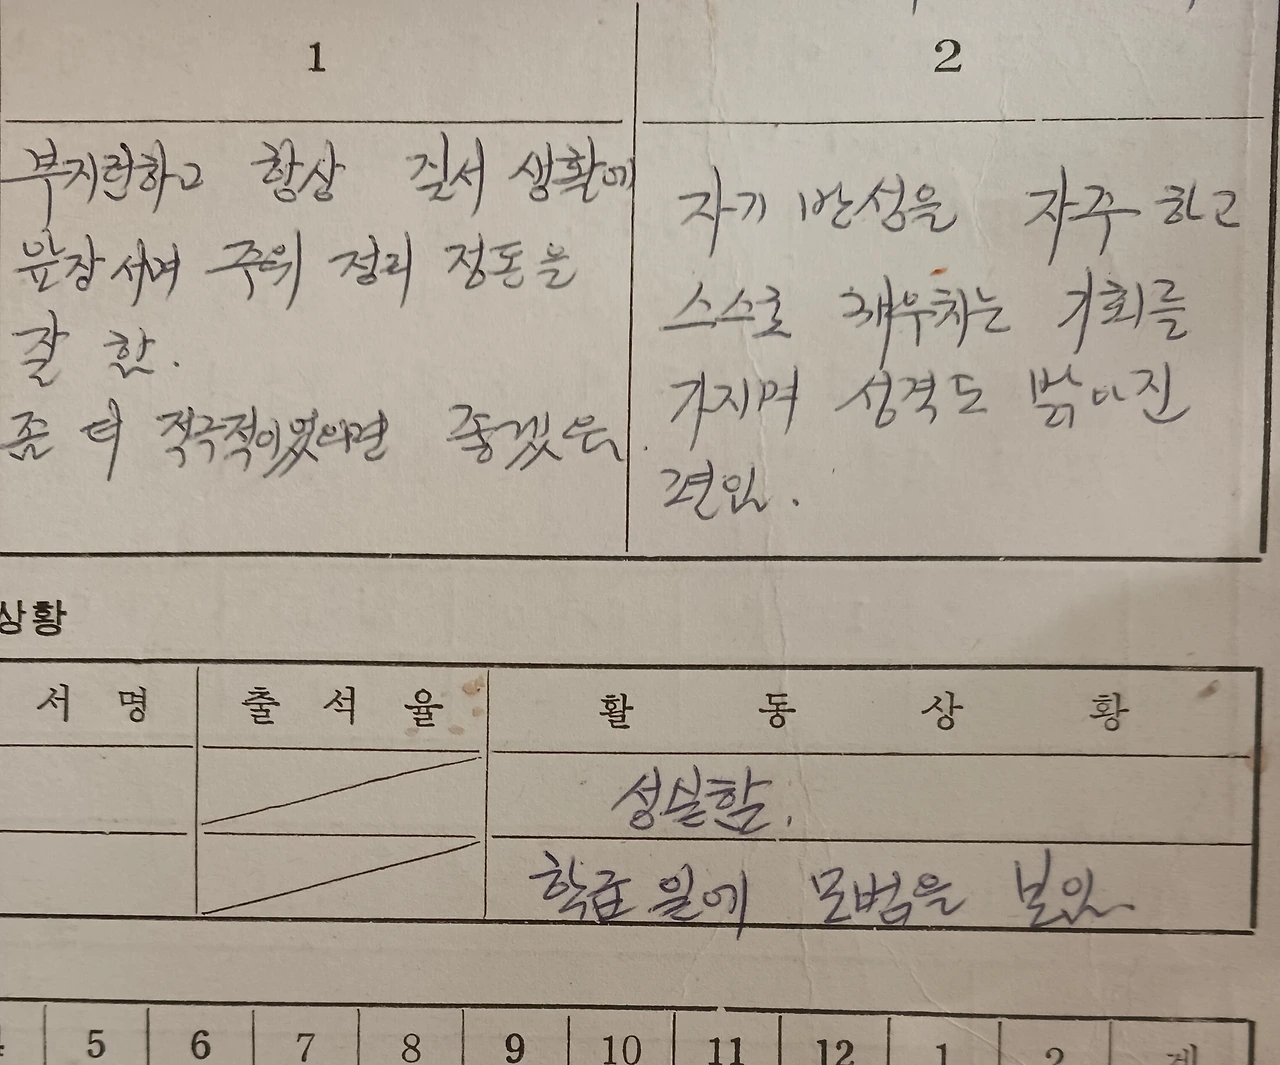 1
2
부지런하고 항상 질서 생활에
앞장서며 주위 정리 정돈을
잘 함.
좀 더 적극적이었으면 좋겠음.
자기 반성을 자주 하고
스스로 깨우치는 기회를
가지며 성격도 밝아진
편임.
상황
서 명 출 석 율 활 동 상 황
성실함.
학급 일에 모범을 보임
5 6 7 8 9 10 11 12 1 2 계